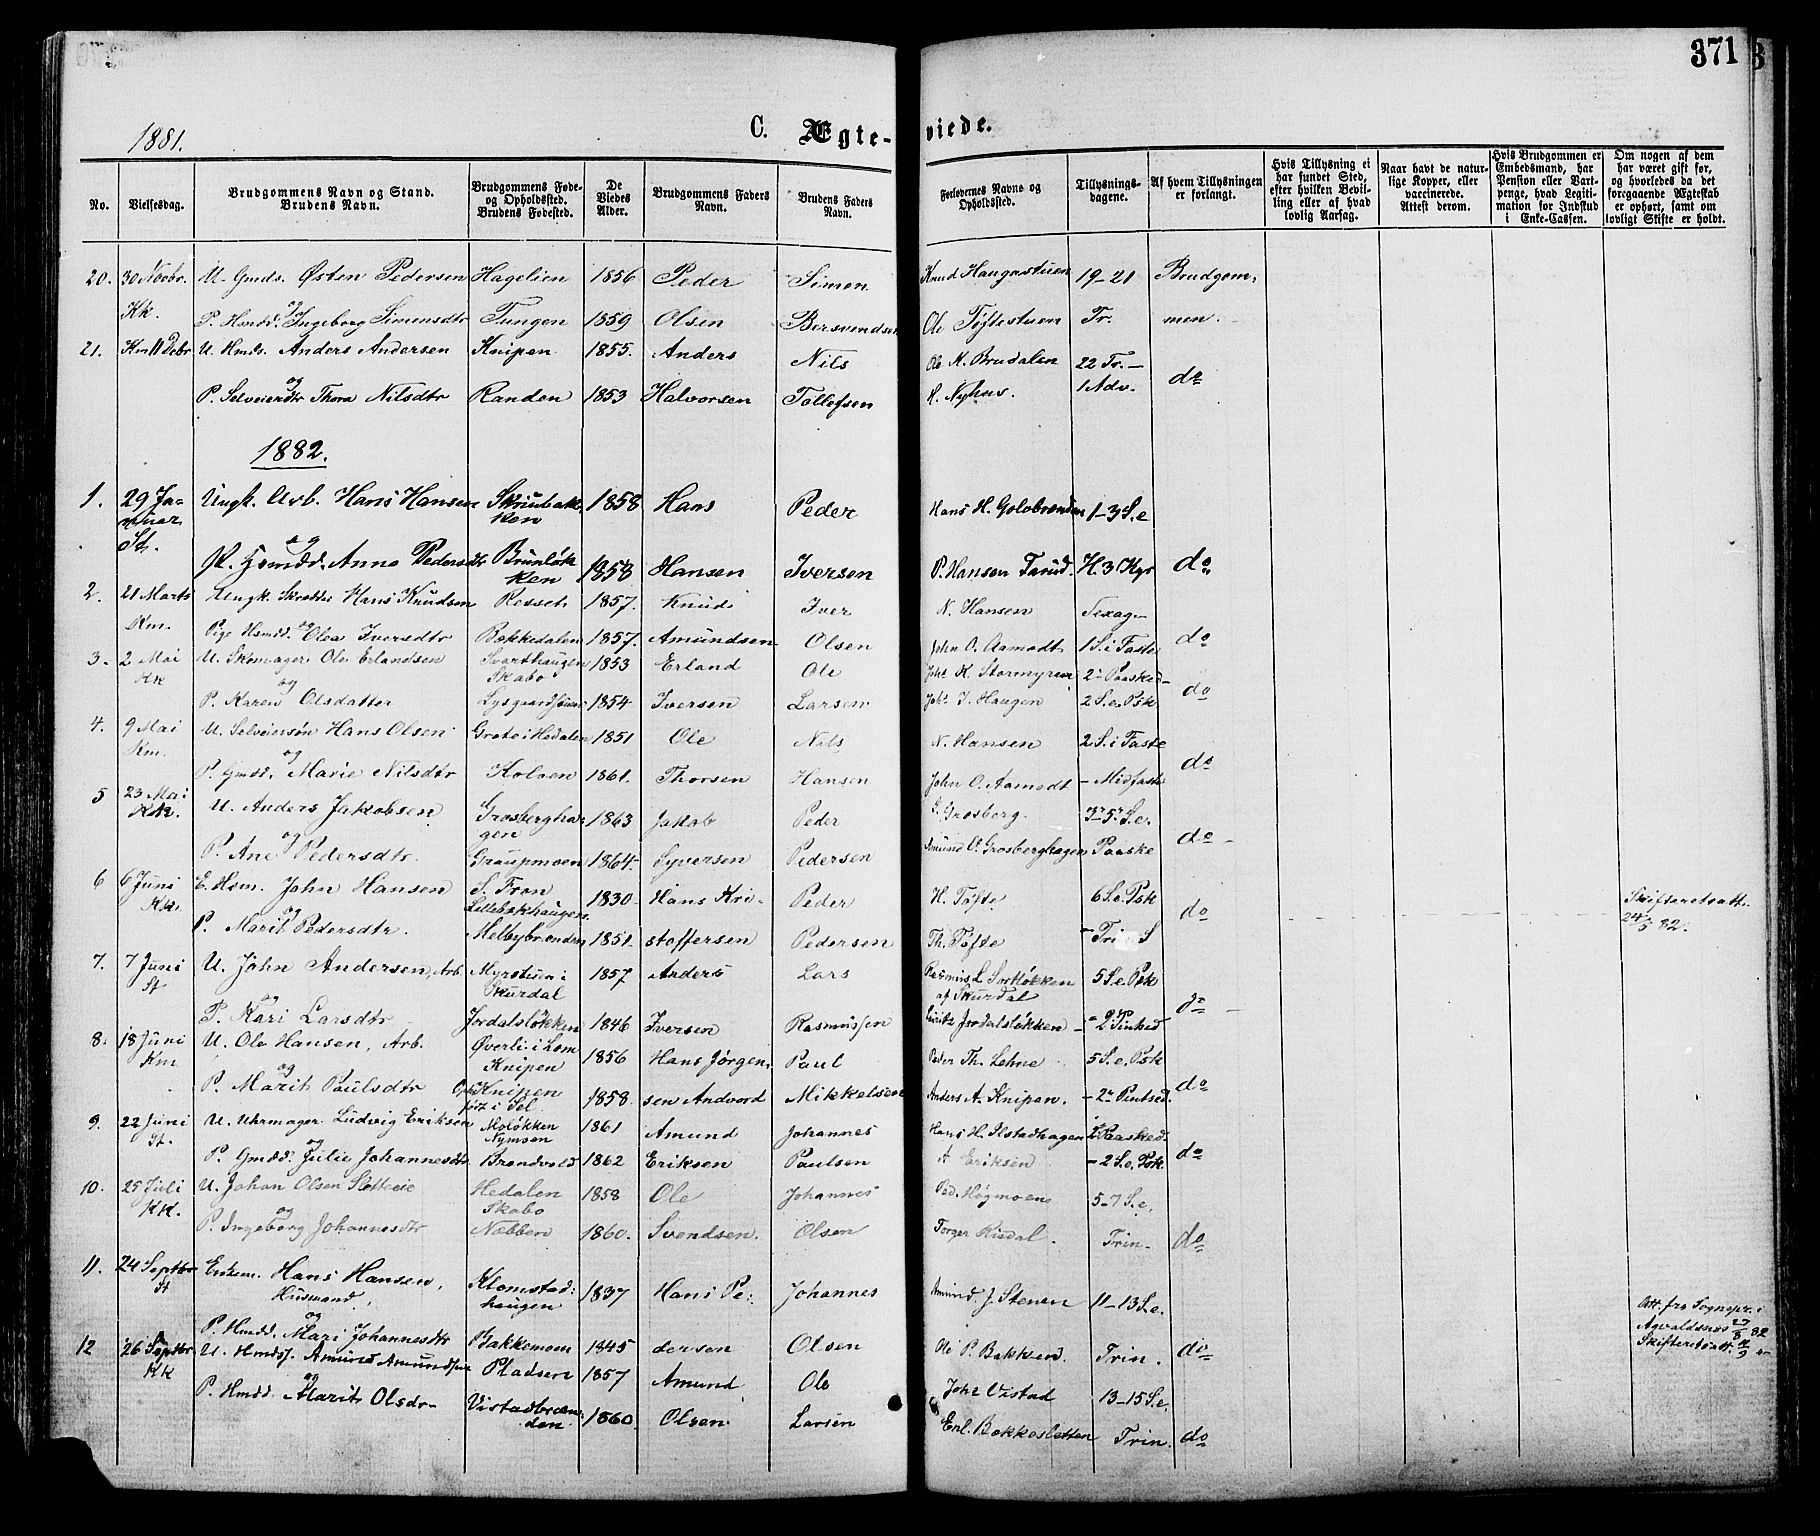 371
1881.
C. Ægteviede.
No.
Vielsesdag.
Brudgommens Navn og Stand.
Brudens Navn.
Brudgommens Føde-
og Opholdssted.
Brudens Fødested.
De
Viedes
Alder.
Brudgommens Faders
Navn.
Brudens Faders
Navn.
Forlovernes Navne og
Opholdssted.
Tillysnings-
dagene.
Af hvem Tillysningen
er forlangt.
Hvis Tillysning ei
har fundet Sted,
efter hvilken Bevil-
ling eller af hvad
lovlig Aarsag.
Naar havt de natur-
lige Kopper, eller
vaccinerede.
Attest derom.
Hvis Brudgommen er
Embedsmand, har
Pension eller Vart-
penge, hvad Legiti-
mation for Indskud
i Enke-Cassen.
Om nogen af dem
har været gift før,
og hvorledes da det
forgaaende Ægteskab
er ophørt, samt om
lovligt Skifte er holdt.
20. 30 Novbr. U. Gmds. Østen Pedersen Hagelien 1856 Peder Simen Knud Haugastuen 19-21 Brudgom-
Kk. og P. Hmdd. Ingeborg Simensdtr Tungen 1859 Olsen Bersvendsen Ole Tøftestuen Tr. men.
21. Km 11 Debr U. Hmds. Anders Andersen Knipen 1855. Anders Nils Ole N. Brudalen 22 Tr. -
og P. Selveierdtr Thora Nilsdtr Randen 1853 Halvorsen Tollefsen H. Nyhus. 1 Adv. do
1882.
1. 29 Ja- Ungk. Arb. Hans Hansen Skrubak- 1858 Hans Peder Hans H. Golobrenden 1-3 S. e
nuar ken
St. og P. Hsmdd. Anne Pedersdtr Brunløk- 1858 Hansen Iversen P. Hansen Tarud. H. 3 Kgr do
ken
2. 21 Marts Ungk. Skrædder Hans Knudsen Resset 1857. Knud Iver N. Hansen Sexag.-
Km. Pige Hsmdd. og Olea Iversdtr Bakkedalen 1857. Amundsen Olsen John O. Aamodt 1 S. i Faste do
3. 2 Mai U. Skomager Ole Erlandsen Svarthaugen 1853 Erland Ole Johs K. Stormyren 2 Paasked-
Kk og Skabo
P. Karen Olsdatter 1854 Iversen Larsen Johs I. Haugen 2 S. e. Psk do
4. 9 Mai U. Selveiersøn Hans Olsen Grote i Hedalen 1851 Ole Nils N. Hansen 2 S. i Faste
Km. og
P. Gmdd. Marie Nilsdtr Kolven 1861. Thorsen Hansen John O. Aamodt - Midfaste do
5 23 Mai U. Anders Jakobsen Grosberghau- 1863 Jakob Peder Grosberg. 3-5 S. e.
Kk. og gen
P. Ane Pedersdtr. Graupmoen 1864. Syversen Pedersen Amund O. Grosberghagen Paaske do
6 6 Juni E. Hsm. John Hansen S. Fron 1830 Hans Kri- Peder H. Tøfte 6 S. e. Psk Skifteretsatt.
Kk. og Lillebækhaugen 24/5 82.
P. Marit Pedersdtr. Melbybrenden 1851. stoffersen Pedersen Th. Tøfte - Trin S do
7. 7 Juni U. John Andersen, Arb. Myrstuen i 1857 Anders Lars Rasmus L. Sortløkken 5 S. e. Psk
St og Skurdal af Skurdal
P. Kari Larsdtr Jordalsløkken 1846 Iversen Rasmussen Jordalsløkken do
8. 18 Juni U. Ole Hansen, Arb. Øverli i Lom 1856 Hans Jørgen- Paul Peder Th. Lehne 5 S. e. Psk
Km og Knipen
P. Marit Paulsdtr Knipen 1858. sen Andvord Mikkelsen Anders A. Knipen. - 2 Pintsed. do
født i Sel.
9. 22 Juni U. Uhrmager Ludvig Eriksen Moløkken 1861 Amund Johannes Hans H. Ilstadhagen 2 Paasked.
St. og Nymoen
P. Gmdd. Julie Johannesdtr Brendvold 1862 Eriksen Paulsen A Eriksen - 2 S. e. Psk do
10. 25 Juli U. Johan Olsen Sletteeie Hedalen 1858 Ole Johannes Ped. Høgmoens 5-7 S. e.
Kk. og Skabo
P. Ingeborg Johannesdtr Nabben 1860. Svendsen. Olsen Torger Risdal. Trin. do
11. 24 Septbr Enkem. Hans Hansen, Klomstad- 1837 Hans Pe- Johannes Amund J. Stenen 11-13 S. e. Att. fra Sognepr. i
St Husmand, haugen Avaldsnes 27/8 82
og P. Hmdd. Mari Johannesdtr Bakkemoen 1845 dersen Olsen Ole P. Bakken. Trin. do Skifteretsatt.
12 26 Septbr U. Hmds. Amund Amundsen Pladsen 1857 Amund Ole Johs Vistad 13-15 S. e.
Kk og
P. Hmdd. Marit Olsdr- Vistadbræn- 1860. Olsen Larsen Erl. Bakkesletten Trin. do
den.